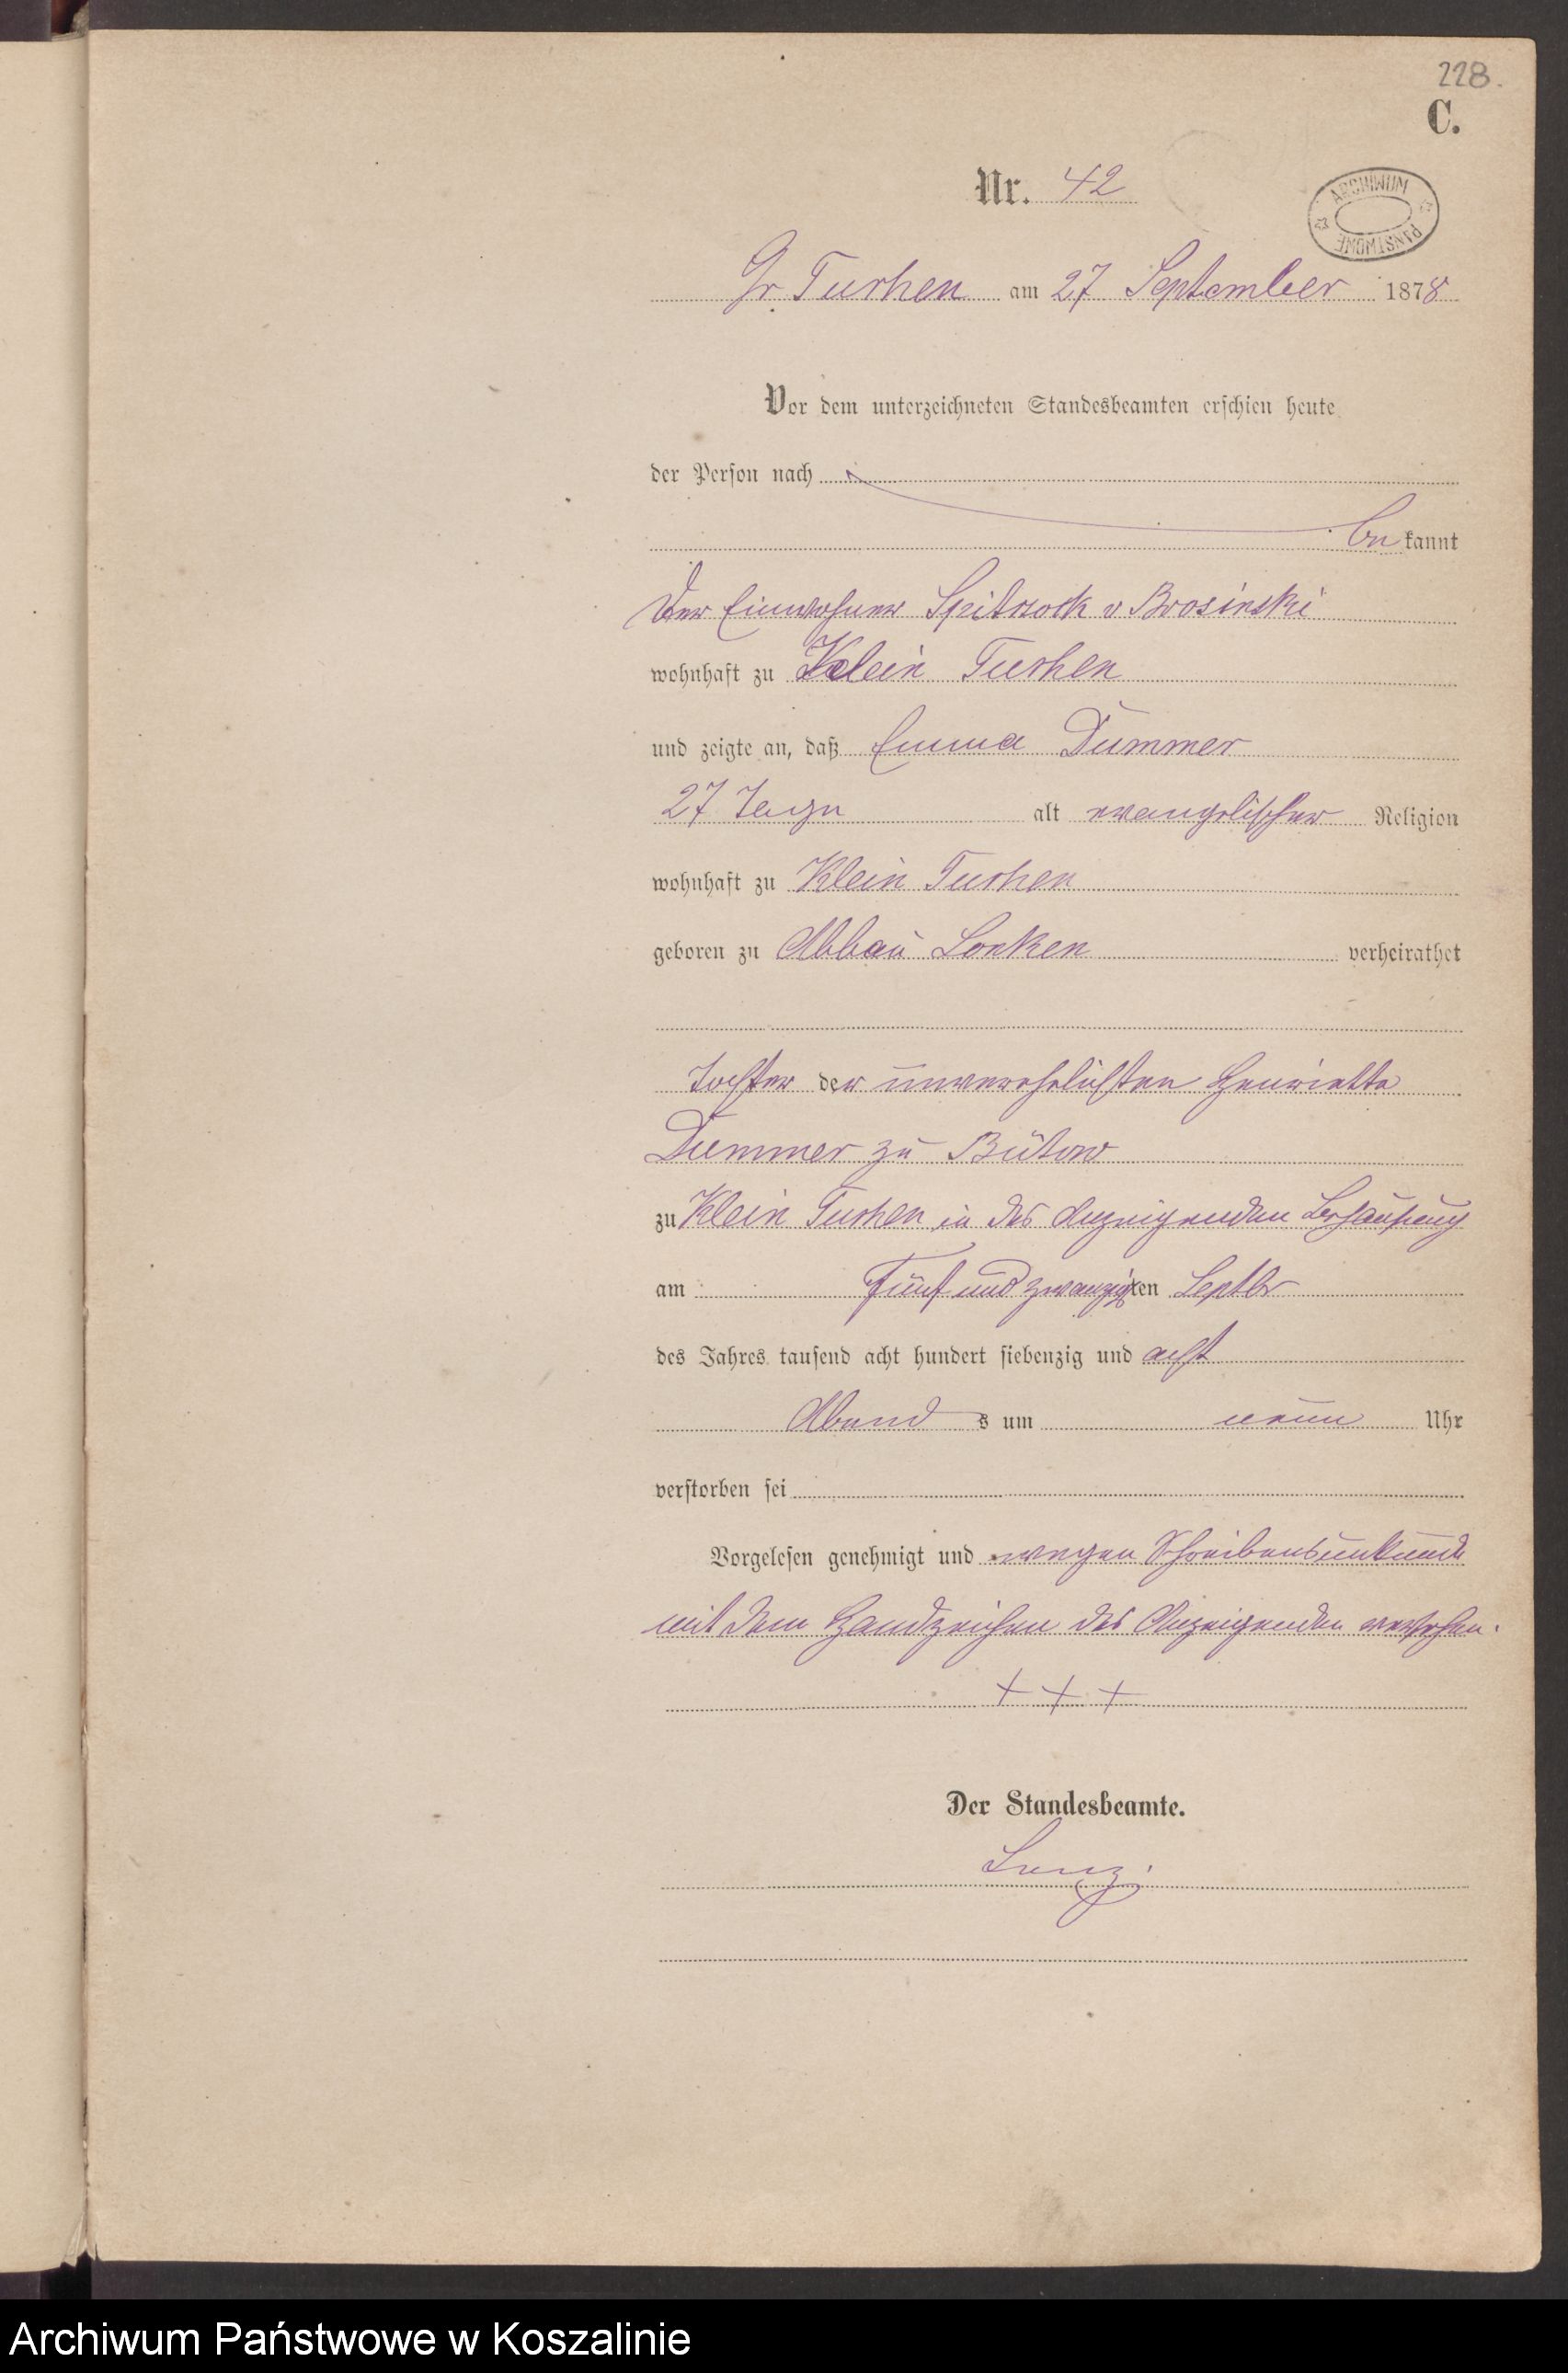 228.
C.
Nr. 42
ARCHIWUM PAŃSTWOWE
Gr. Tuchen am 27 September 1878
Vor dem unterzeichneten Standesbeamten erschien heute
der Person nach
bekannt
Der Einwohner Spitzock v Brosinski
wohnhaft zu Klein Tuchen
und zeigte an, daß Emma Dummer
27 Tage alt evangelischer Religion
wohnhaft zu Klein Tuchen
geboren zu Abbau Lonken verheirathet
Tochter der unverehelichten Henriette
Dummer zu Bütow
zu Klein Tuchen in des Anzeigenden Behausung
am Fünf und zwanzigten Septbr
des Jahres tausend acht hundert siebenzig und acht
Abend s um neun Uhr
verstorben sei
Vorgelesen genehmigt und wegen Schreibensunkunde
mit dem Handzeichen des Anzeigenden versehen.
+ + +
Der Standesbeamte.
Lenz.
Archiwum Państwowe w Koszalinie